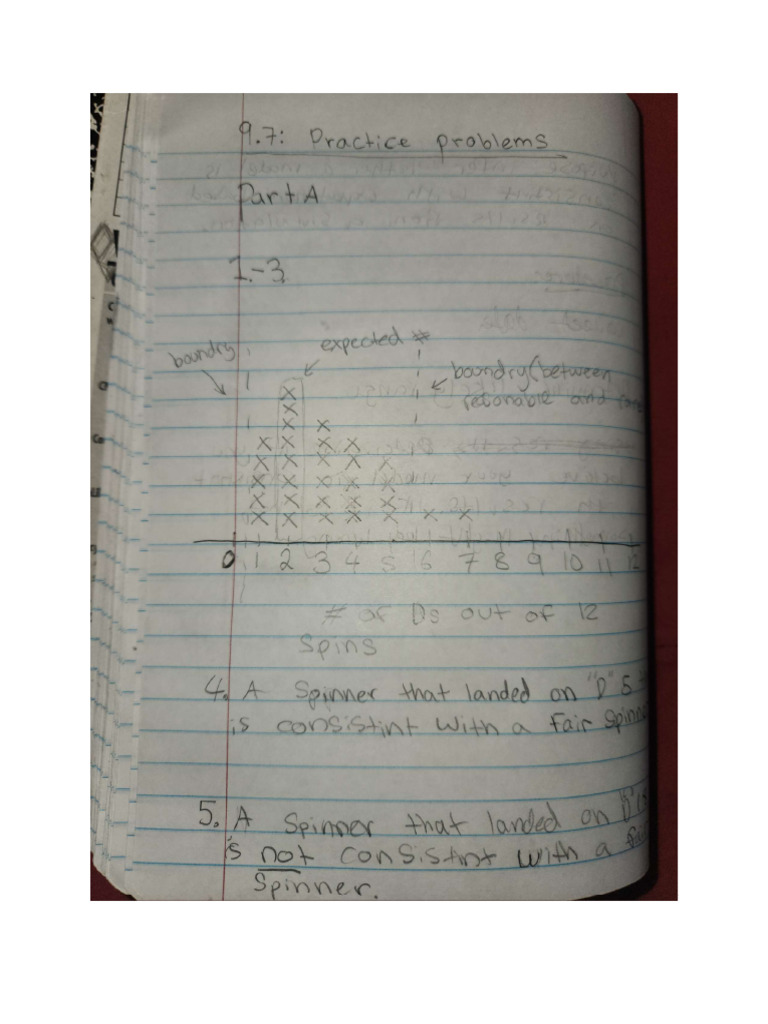 9.7: Practice problems
Part A
1.-3.
boundry
expected #
boundry (between
resonable and rare
X
X
X X
X X X X
X X X X X
X X X X X
X X X X X
X X X X X X X
0 1 2 3 4 5 6 7 8 9 10 11 12
# of Ds out of 12
spins
4. A Spinner that landed on "D" 5
is consistint with a Fair Spinn
5. A Spinner that landed on "D"
is not consistint with a
Spinner.